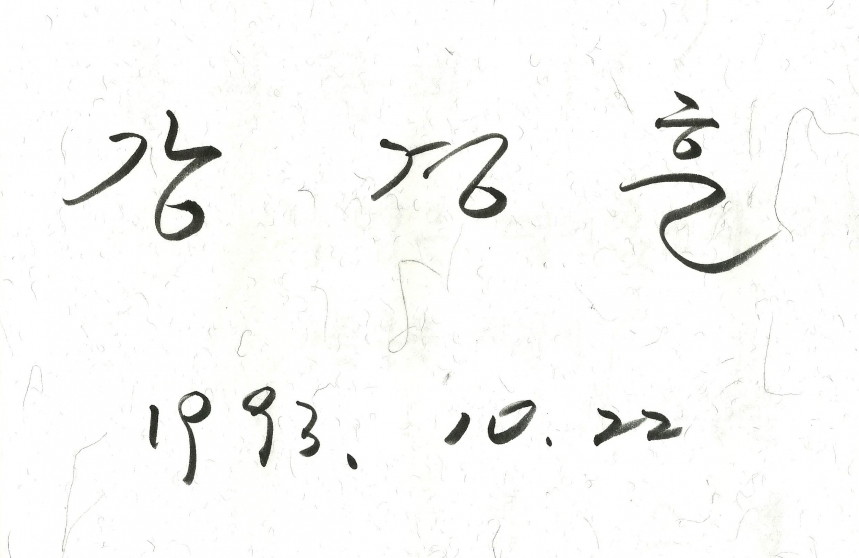 강 정 훈
1993. 10. 22